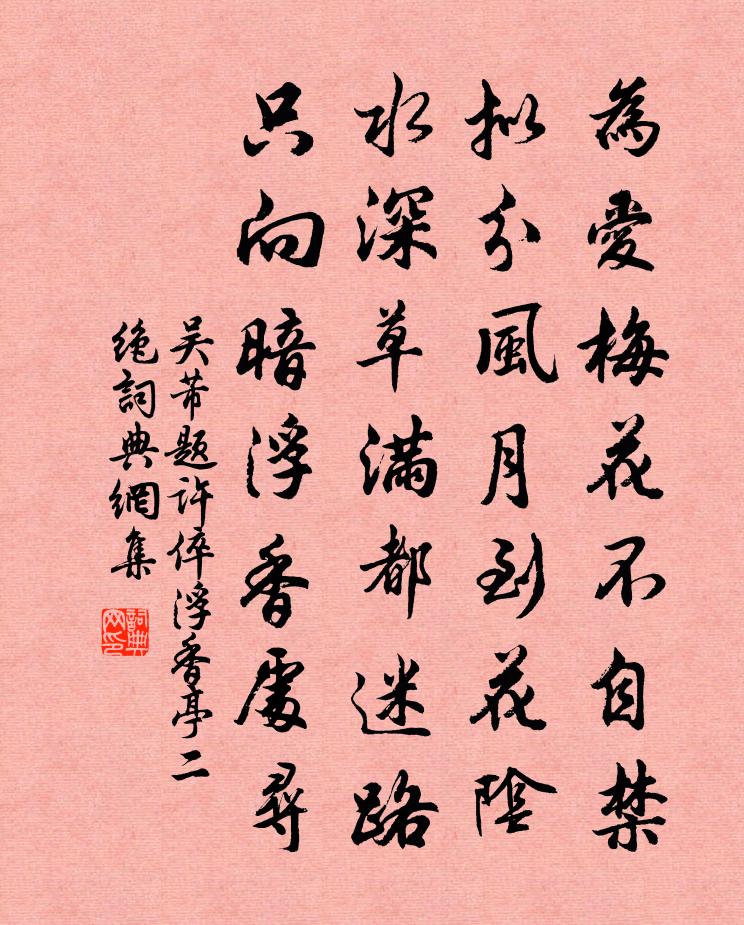 為愛梅花不自禁
擬分風月到花陰
水深草滿都迷路
只向暗浮香處尋
吴芾題許倅浮香亭二
绝詞典網集
詞典
网印